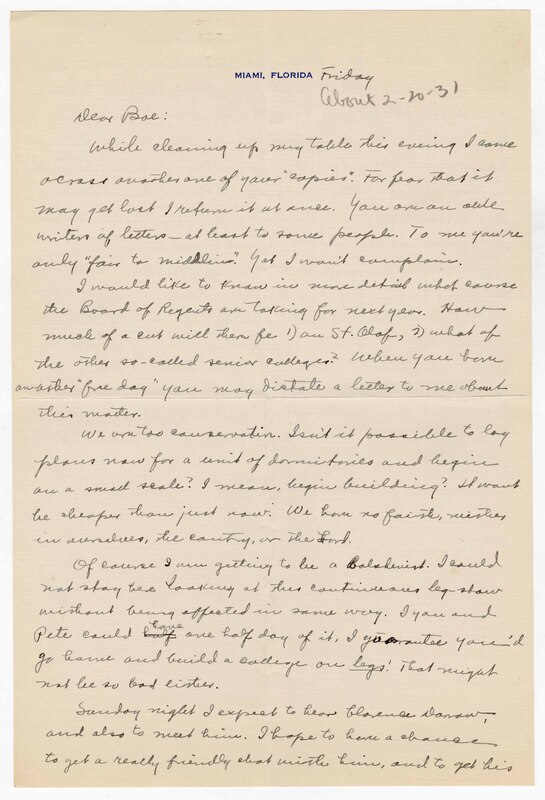 MIAMI, FLORIDA Friday
About 2-20-31
Dear Boe:
While cleaning up my table this evening I came
across another one of your "copies". For fear that it
may get lost I return it at once. You are an able
writer of letters — at least to some people. To me you're
only "fair to middlin". Yet I won't complain.
I would like to know in more detail what course
the Board of Regents are taking for next year. How
much of a cut will there be 1) on St. Olaf, 2) what of
the other so-called senior colleges? When you have
another "free day" you may dictate a letter to me about
this matter.
We are too conservative. Isn't it possible to lay
plans now for a unit of dormitories and begin
on a small scale? I mean, begin building? It wont
be cheaper than just now. We have no faith, neither
in ourselves, the country, or the Lord.
Of course I am getting to be a Bolshevist. I could
not stay here looking at this continuous leg-show
without being affected in some way. If you and
Pete could have one half day of it, I guarantee you'd
go home and build a college on legs! That might
not be so bad either.
Sunday night I expect to hear Clarence Darrow,
and also to meet him. I hope to have a chance
to get a really friendly chat with him, and to get his